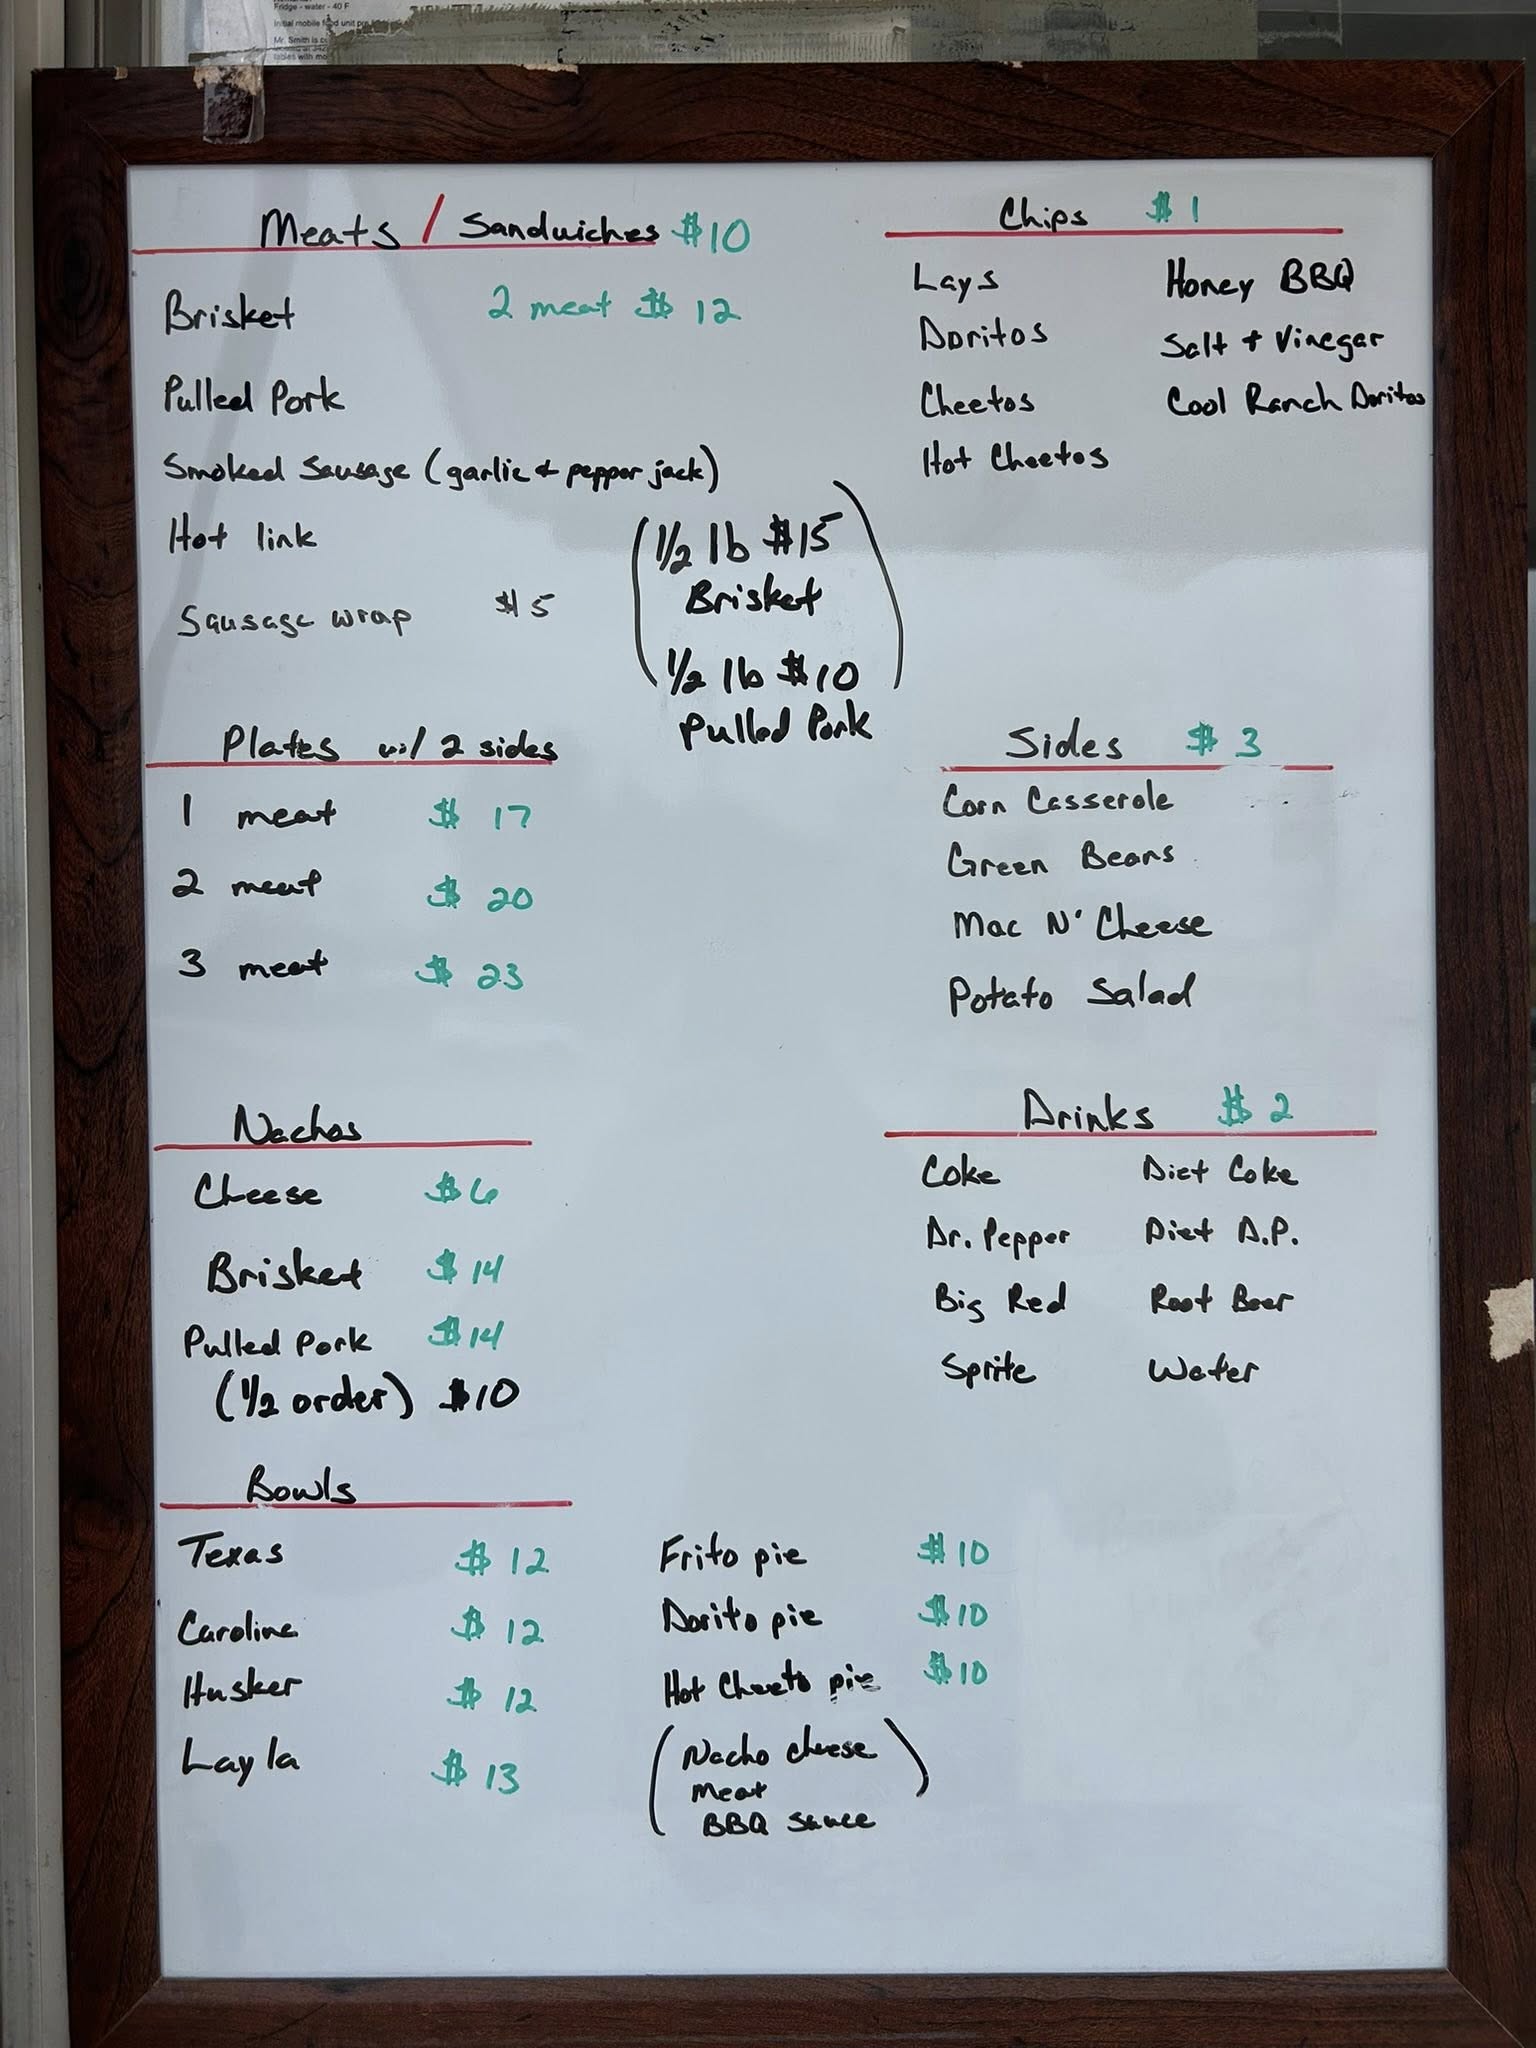 Fridge - water - 40 F
Initial mobile food unit
Mr. Smith is
tables with mo
Meats / Sandwiches $10
Brisket 2 meat $ 12
Pulled Pork
Smoked Sausage (garlic & pepper jack)
Hot link
Sausage wrap $5
(1/2 lb $15
Brisket
1/2 lb $10)
Pulled Pork
Chips $1
Lays Honey BBQ
Doritos Salt + Vinegar
Cheetos Cool Ranch Doritos
Hot Cheetos
Plates w/ 2 sides
1 meat $ 17
2 meat $ 20
3 meat $ 23
Sides $ 3
Corn Casserole
Green Beans
Mac N' Cheese
Potato Salad
Nachos
Cheese $6
Brisket $14
Pulled Pork $14
(1/2 order) $10
Drinks $ 2
Coke Diet Coke
Dr. Pepper Diet D.P.
Big Red Root Beer
Sprite Water
Bowls
Texas $ 12
Carolina $ 12
Husker $ 12
Layla $ 13
Frito pie $10
Dorito pie $10
Hot Cheeto pie $10
(Nacho cheese
meat
BBQ sauce)